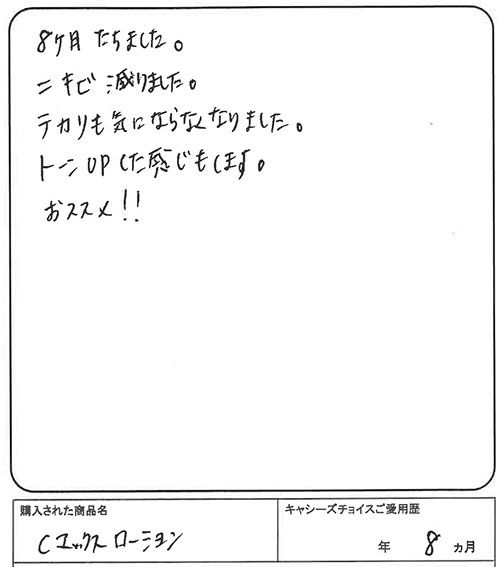 8ヶ月たちました。
ニキビ減りました。
テカリも気にならなくなりました。
トーンUPした感じもします。
おススメ!!
購入された商品名
キャシーズチョイスご愛用歴
Cエックスローション
年 8 ヵ月